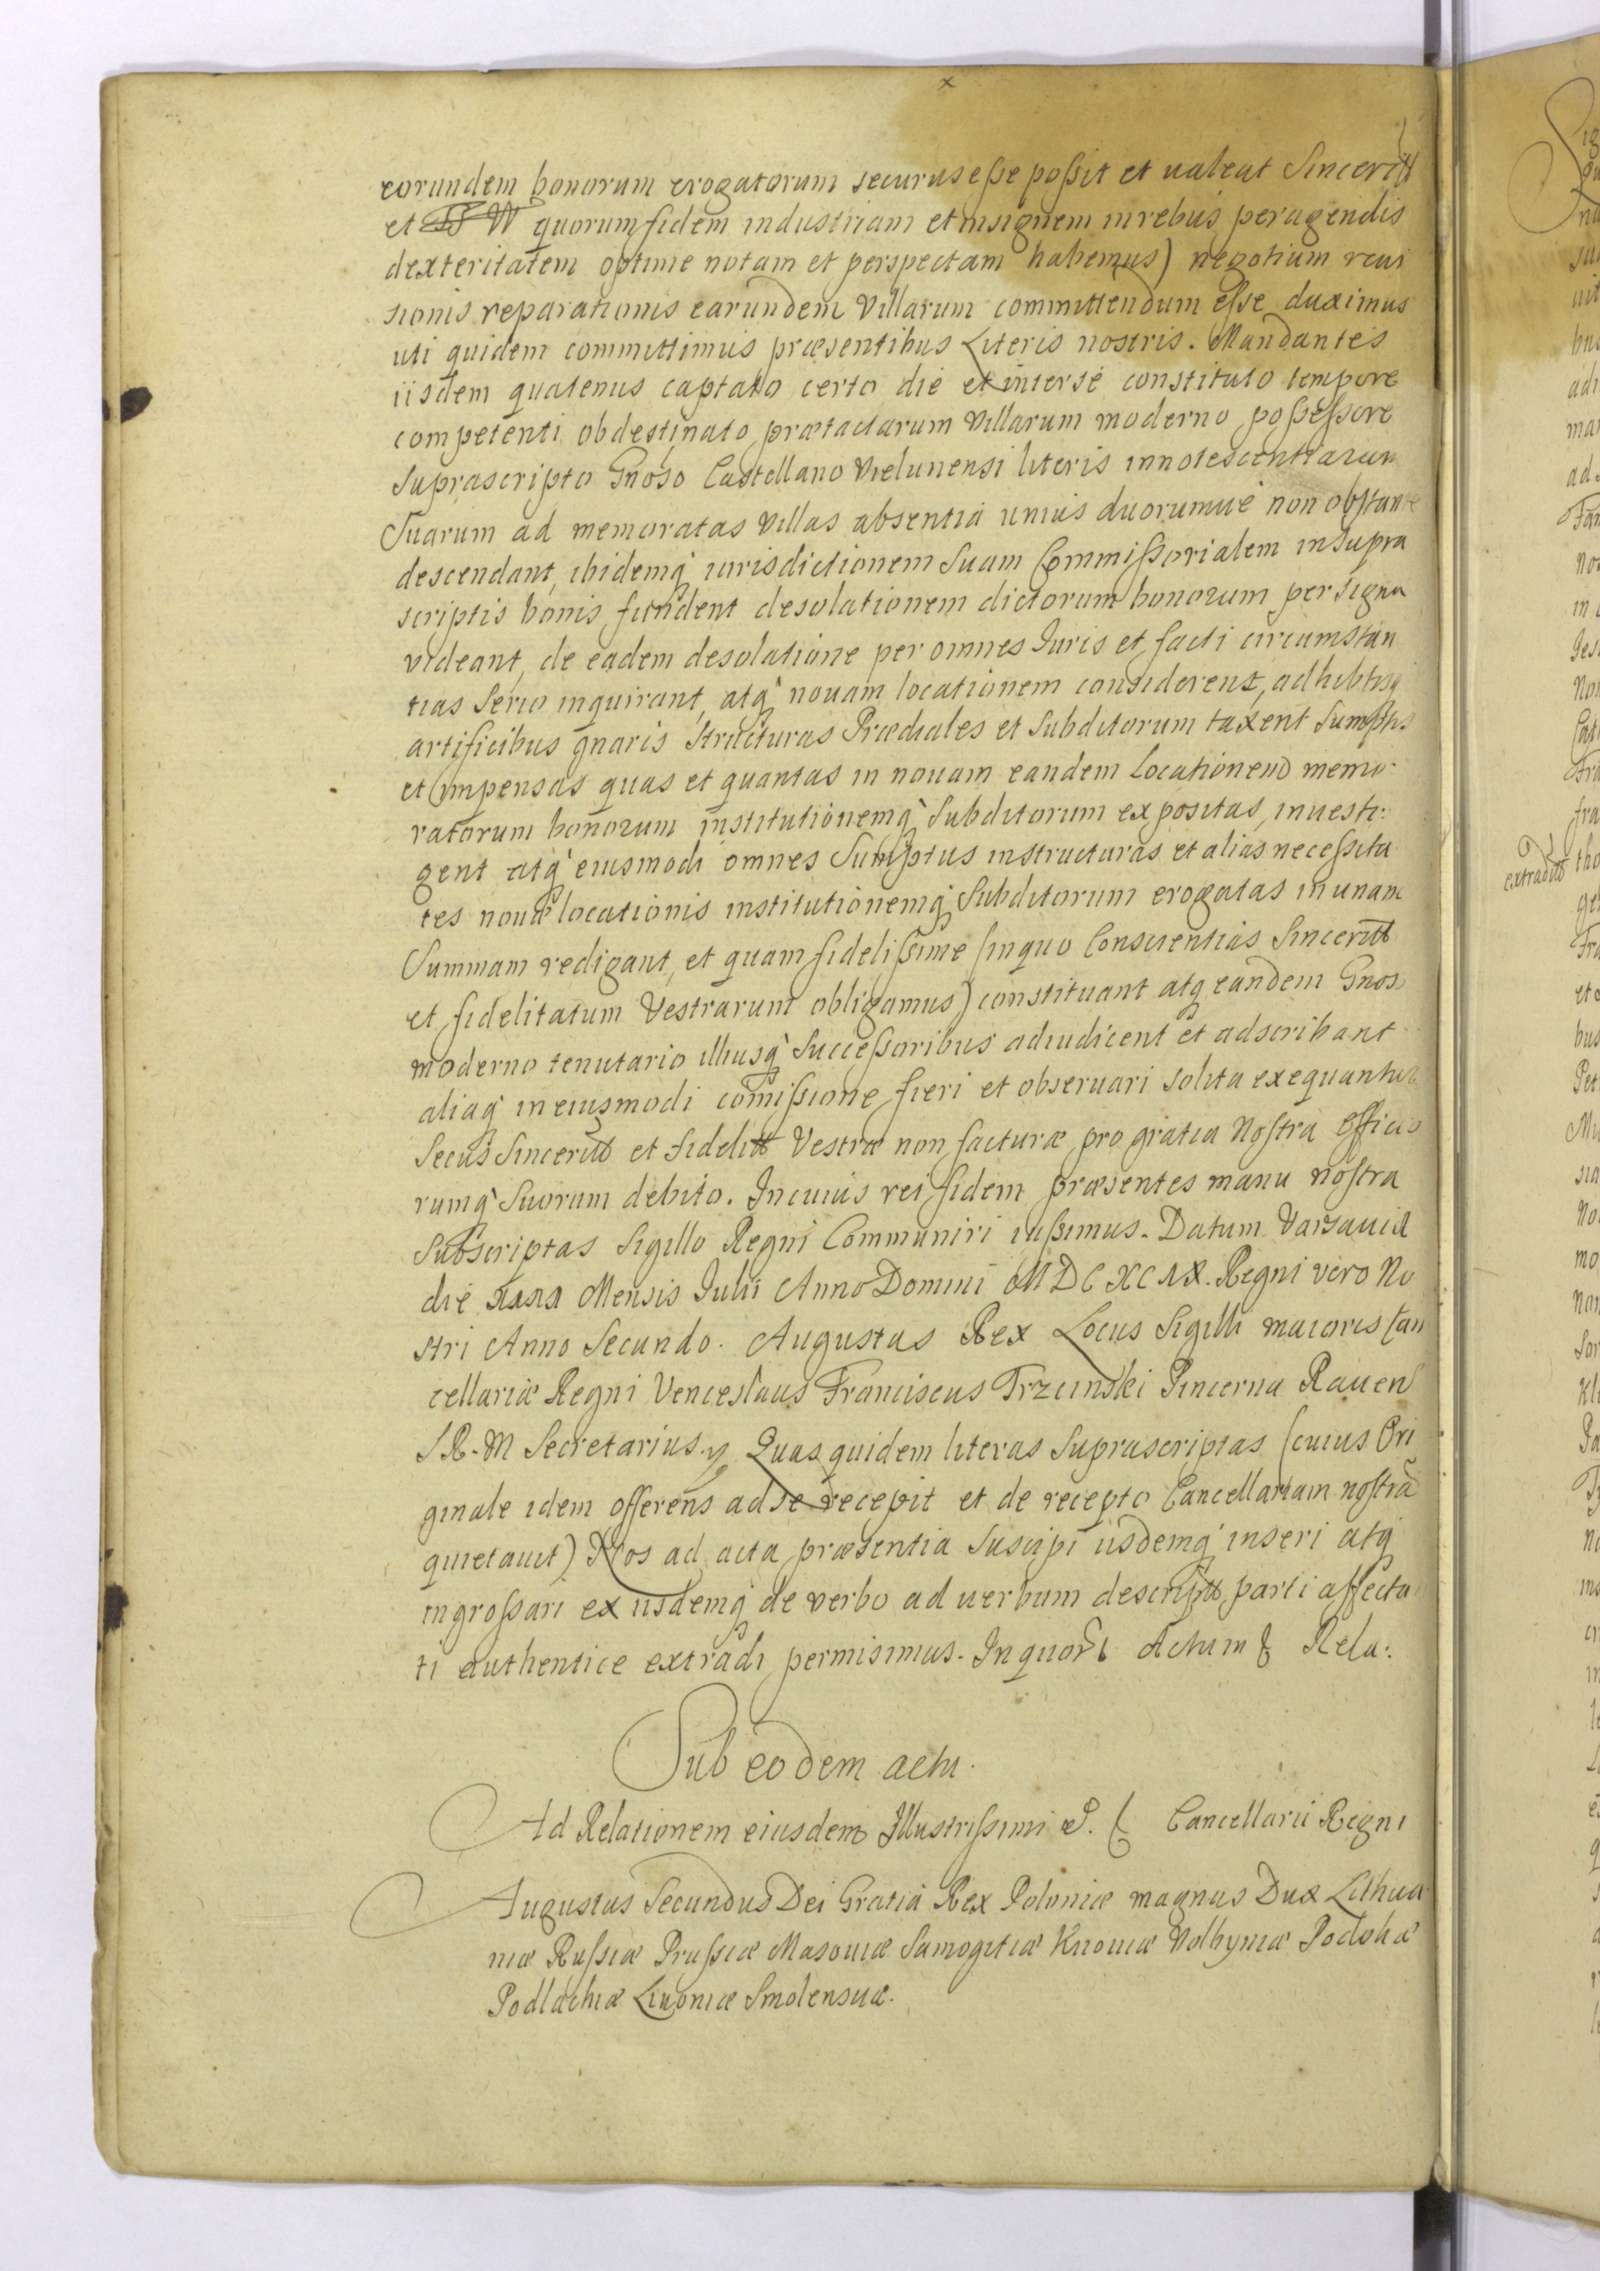 eorundem bonorum erogatorum securus esse possit et ualeat Sinceritt
et FF W quorum fidem industriam et insignem in rebus peragendis
dexteritatem optime notam et perspectam habemus) negotium reui
sionis reparationis earundem Villarum committendum esse duximus
uti quidem committimus præsentibus Literis nostris. Mandantes
iisdem quatenus captato certo die et inter se constituto tempore
competenti obdestinato prætactarum Villarum moderno possessore
Suprascripto Gnoso Castellano Vielunensi literis innotescentiarum
Suarum ad memoratas Villas absentia unius duorumue non obstante
descendant, ibidemq iurisdictionem Suam Commissorialem in supra
scriptis bonis fundent desolationem dictorum bonorum per signa
videant, de eadem desolatione per omnes Iuris et facti circumstan
tias Serio inquirant, atq nouam locationem considerent, adhibitisq
artificibus gnaris Structuras Prædiales et Subditorum taxent Sumptus
et impensas quas et quantas in nouam eandem locationem memo-
ratorum bonorum institutionemq Subditorum expositas, inuesti:
gent atq eiusmodi omnes Sumptus instructuras et alias necessita
tes nouæ locationis institutionemq Subditorum erogatas in unam
Summam redigant, et quam fidelissime (in quo Conscientias Sinceritt
et fidelitatum Vestrarum obligamus) constituant atq eandem Gnoso
moderno tenutario illiusq Successoribus adiudicent et adscribant
aliaq in eiusmodi comissione fieri et obseruari solita exequantur
Secus Sinceritt et fidelitt Vestræ non facturæ pro gratia Nostra Officio
rumq Suorum debito. In cuius rei fidem præsentes manu nostra
Subscriptas Sigillo Regni Communiri iussimus. Datum Varsauiæ
die Mensis Iulii Anno Domini MDCXCIX. Regni vero No
stri Anno Secundo. Augustus Rex Locus Sigilli maioris Can
cellariæ Regni Venceslaus Franciscus Trzcinski Pincerna Rauen
S R. M Secretarius. Quas quidem literas Suprascriptas (cuius Ori
ginale idem offerens ad se recepit et de recepto Cancellariam nostrã
quietauit) Nos ad acta præsentia Suscipi iisdemq inseri atq
ingrossari ex iisdemq de verbo ad uerbum descriptt parti affecta
ti authentice extradi permisimus. In quor Actum Rela:
Sub eodem actu.
Ad Relationem eiusdem Illustrissimi &. Cancellarii Regni
Augustus Secundus Dei Gratia Rex Poloniæ magnus Dux Lithua
niæ Russiæ Prussiæ Masouiæ Samogitiæ Kiiouiæ Volhyniæ Podoliæ
Podlachiæ Liuoniæ Smolensciæ.
extraditt